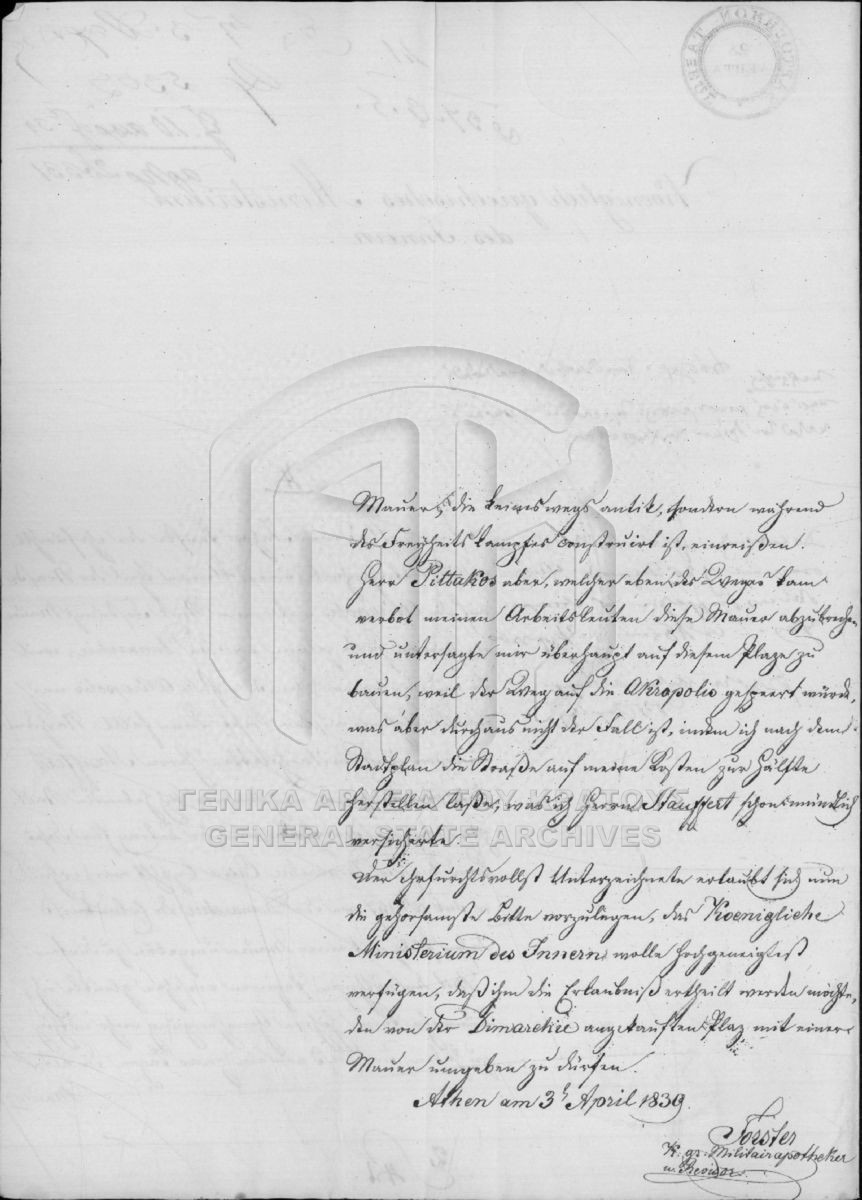 Mauer, die keineswegs antik, sondern während
des Freyheitskampfes construirt ist, einreißen.
Herr Pittakos aber, welcher eben des Weges kam
verbot meinen Arbeitsleuten diese Mauer abzubrechen
und untersagte mir überhaupt auf diesem Plaze zu
bauen, weil der Weg auf die Akropolis gesperrt würde,
was aber durchaus nicht der Fall ist, indem ich nach dem
Stadtplan die Straße auf meine Kosten zur Hälfte
herstellen laße, was ich Herrn Stauffert schon mündlich
versicherte.
Der Ehrfurchtsvollst Unterzeichnete erlaubt sich nun
die gehorsamste Bitte vorzulegen, das Koenigliche
Ministerium des Innern wolle hochgeneigtest
verfügen, daß ihm die Erlaubniß ertheilt werden möchte,
den von der Dimarchie angekauften Plaz mit einer
Mauer umgeben zu dürfen.
Athen am 3t April 1839.
Forster
K. gr. Militairapotheker
u. Revisor
ΓΕΝΙΚΑ ΑΡΧΕΙΑ ΤΟΥ ΚΡΑΤΟΥΣ
GENERAL STATE ARCHIVES